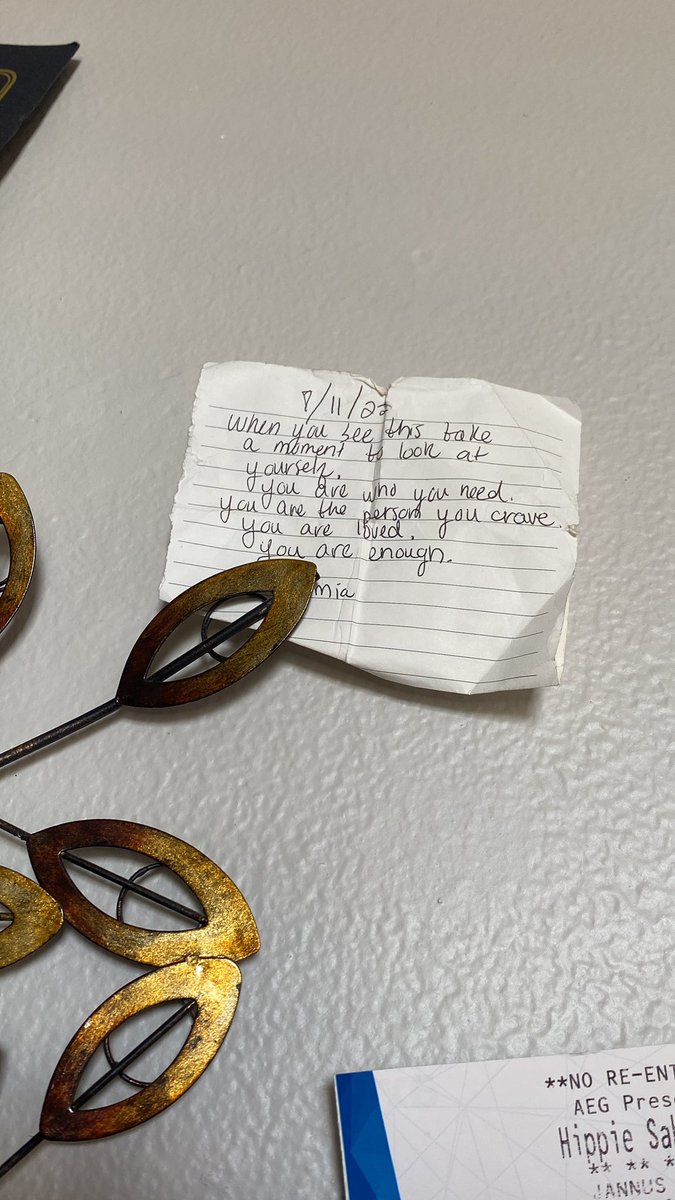 8/11/22
when you see this take
a moment to look at
yourself.
you are who you need.
you are the person you crave.
you are loved.
you are enough.
mia
**NO RE-ENT
AEG Prese
Hippie Sa
** ** *
JANNUS